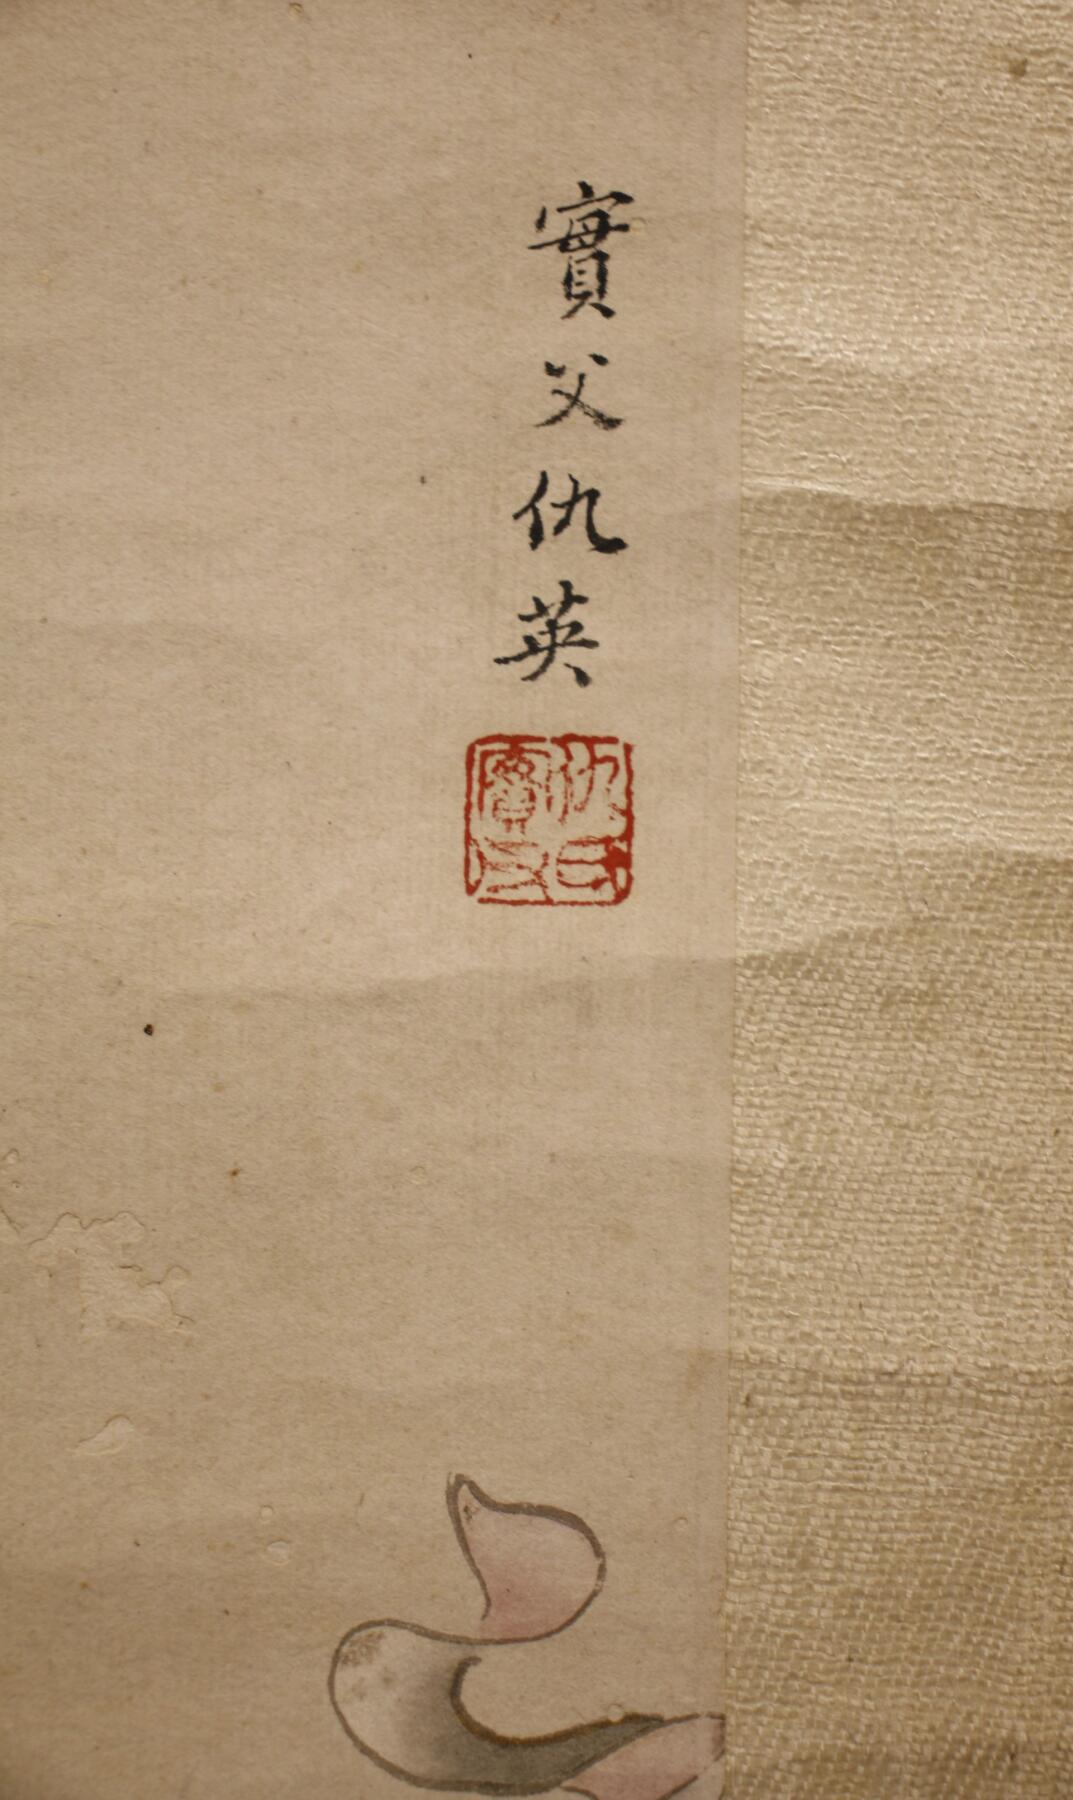 實父仇英
仇氏
實父